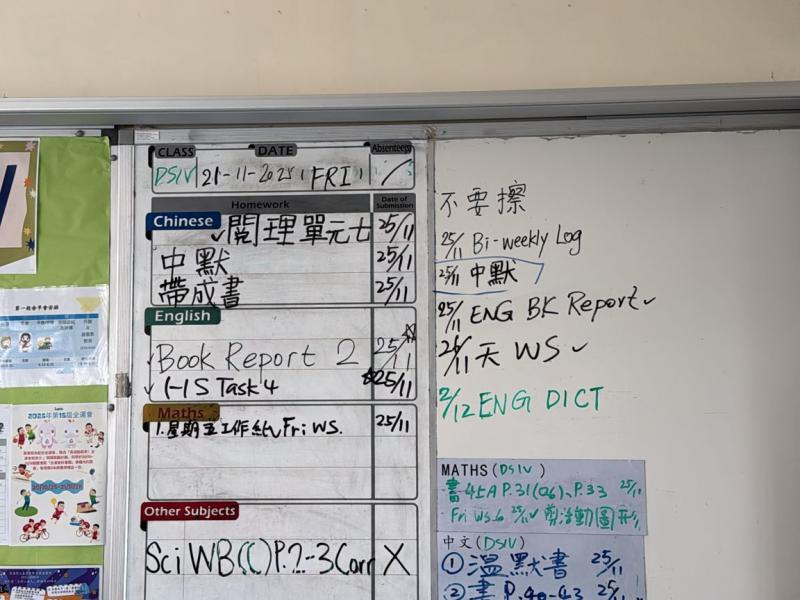 CLASS DATE Absentees
DSIV 21-11-2025 (FRI) /
Homework Date of Submission
Chinese
✓閱理單元七 25/11
中默 25/11
帶成書 25/11
English
✓Book Report 2 25/11
✓ HS Task 4 25/11
Maths
1.星期五工作紙 Fri WS. 25/11
Other Subjects
Sci WB(C)P.2-3 Corr X
不要擦
25/11 Bi-weekly Log
25/11 中默
25/11 ENG BK Report✓
25/11 天 WS ✓
2/12 ENG DICT
MATHS (DSIV)
書45A P.31(Q6)、P.33 25/11
Fri WS.6 25/11✓
中文(DSIV)
① 溫默書 25/11
② 書 P.40-43 25/11
2025年第15屆全運會